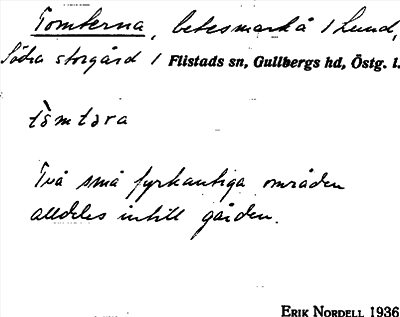 Tomterna, betesmark å Lund,
Södra storgård / Flistads sn, Gullbergs hd, Östg. l.
tòmtəra
Två små fyrkantiga områden
alldeles intill gården.
ERIK NORDELL 1936